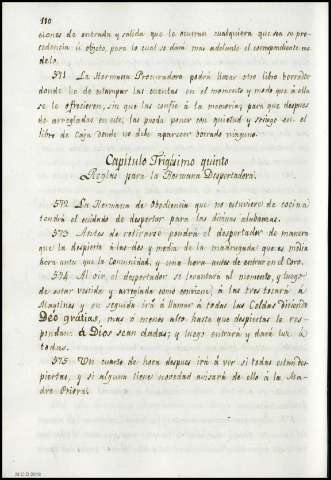 110
ciones de entrada y salida que le ocurran cualquiera que sea su pro-
cedencia ú objeto, para lo cual se dará mas adelante el correspondiente mo-
delo.
571 La Hermana Procuradora podrá llevar otro libro borrador
donde ha de estampar las cuentas en el momento y modo que á ella
se le ofrecieren, sin que las confie á la memoria; para que despues
de arregladas en este, las pueda poner con quietud y sosiego en el
libro de Caja donde no debe aparecer borrado ninguno.
Capitulo Trigésimo quinto
Reglas para la Hermana Despertadora.
572 La Hermana de Obediencia que no estuviere de cocina
tendrá el cuidado de despertar para las divinas alabanzas.
573 Antes de retirarse pondrá el despertador de manera
que la despierte á las dos y media de la madrugada que es media
hora antes que la Comunidad, y una hora antes de entrar en el Coro.
574 Al oir el despertador se levantará al momento, y luego
de estar vestida y arreglada como conviene, á las tres tocará á
Maytines y en seguida irá á llamar á todas las Celdas diciendo
Deo gratias, mas ó menos alto hasta que despiertas le res-
pondan: á Dios sean dadas; y luego entrará y dará luz á
todas.
575 Un cuarto de hora despues irá á ver si todas estan des-
piertas, y si alguna tienes novedad avisará de ello á la Ma-
dre Priora.